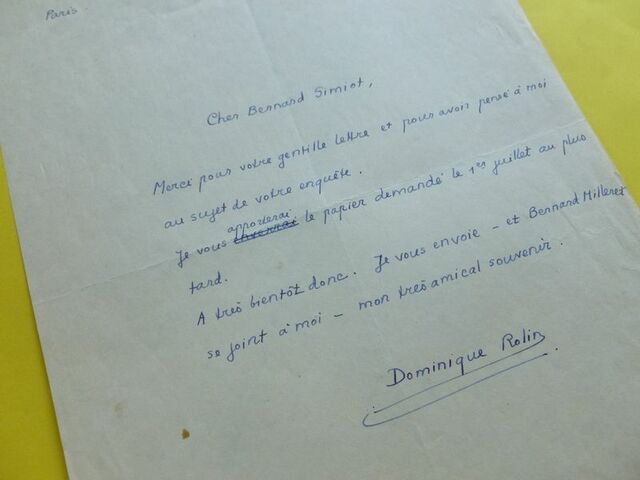 Paris
Cher Bernard Simiot,
Merci pour votre gentille lettre et pour avoir pensé à moi
au sujet de votre enquête.
Je vous apporterai le papier demandé le 1er juillet au plus
tard.
A très bientôt donc. Je vous envoie – et Bernard Milleret
se joint à moi – mon très amical souvenir.
Dominique Rolin